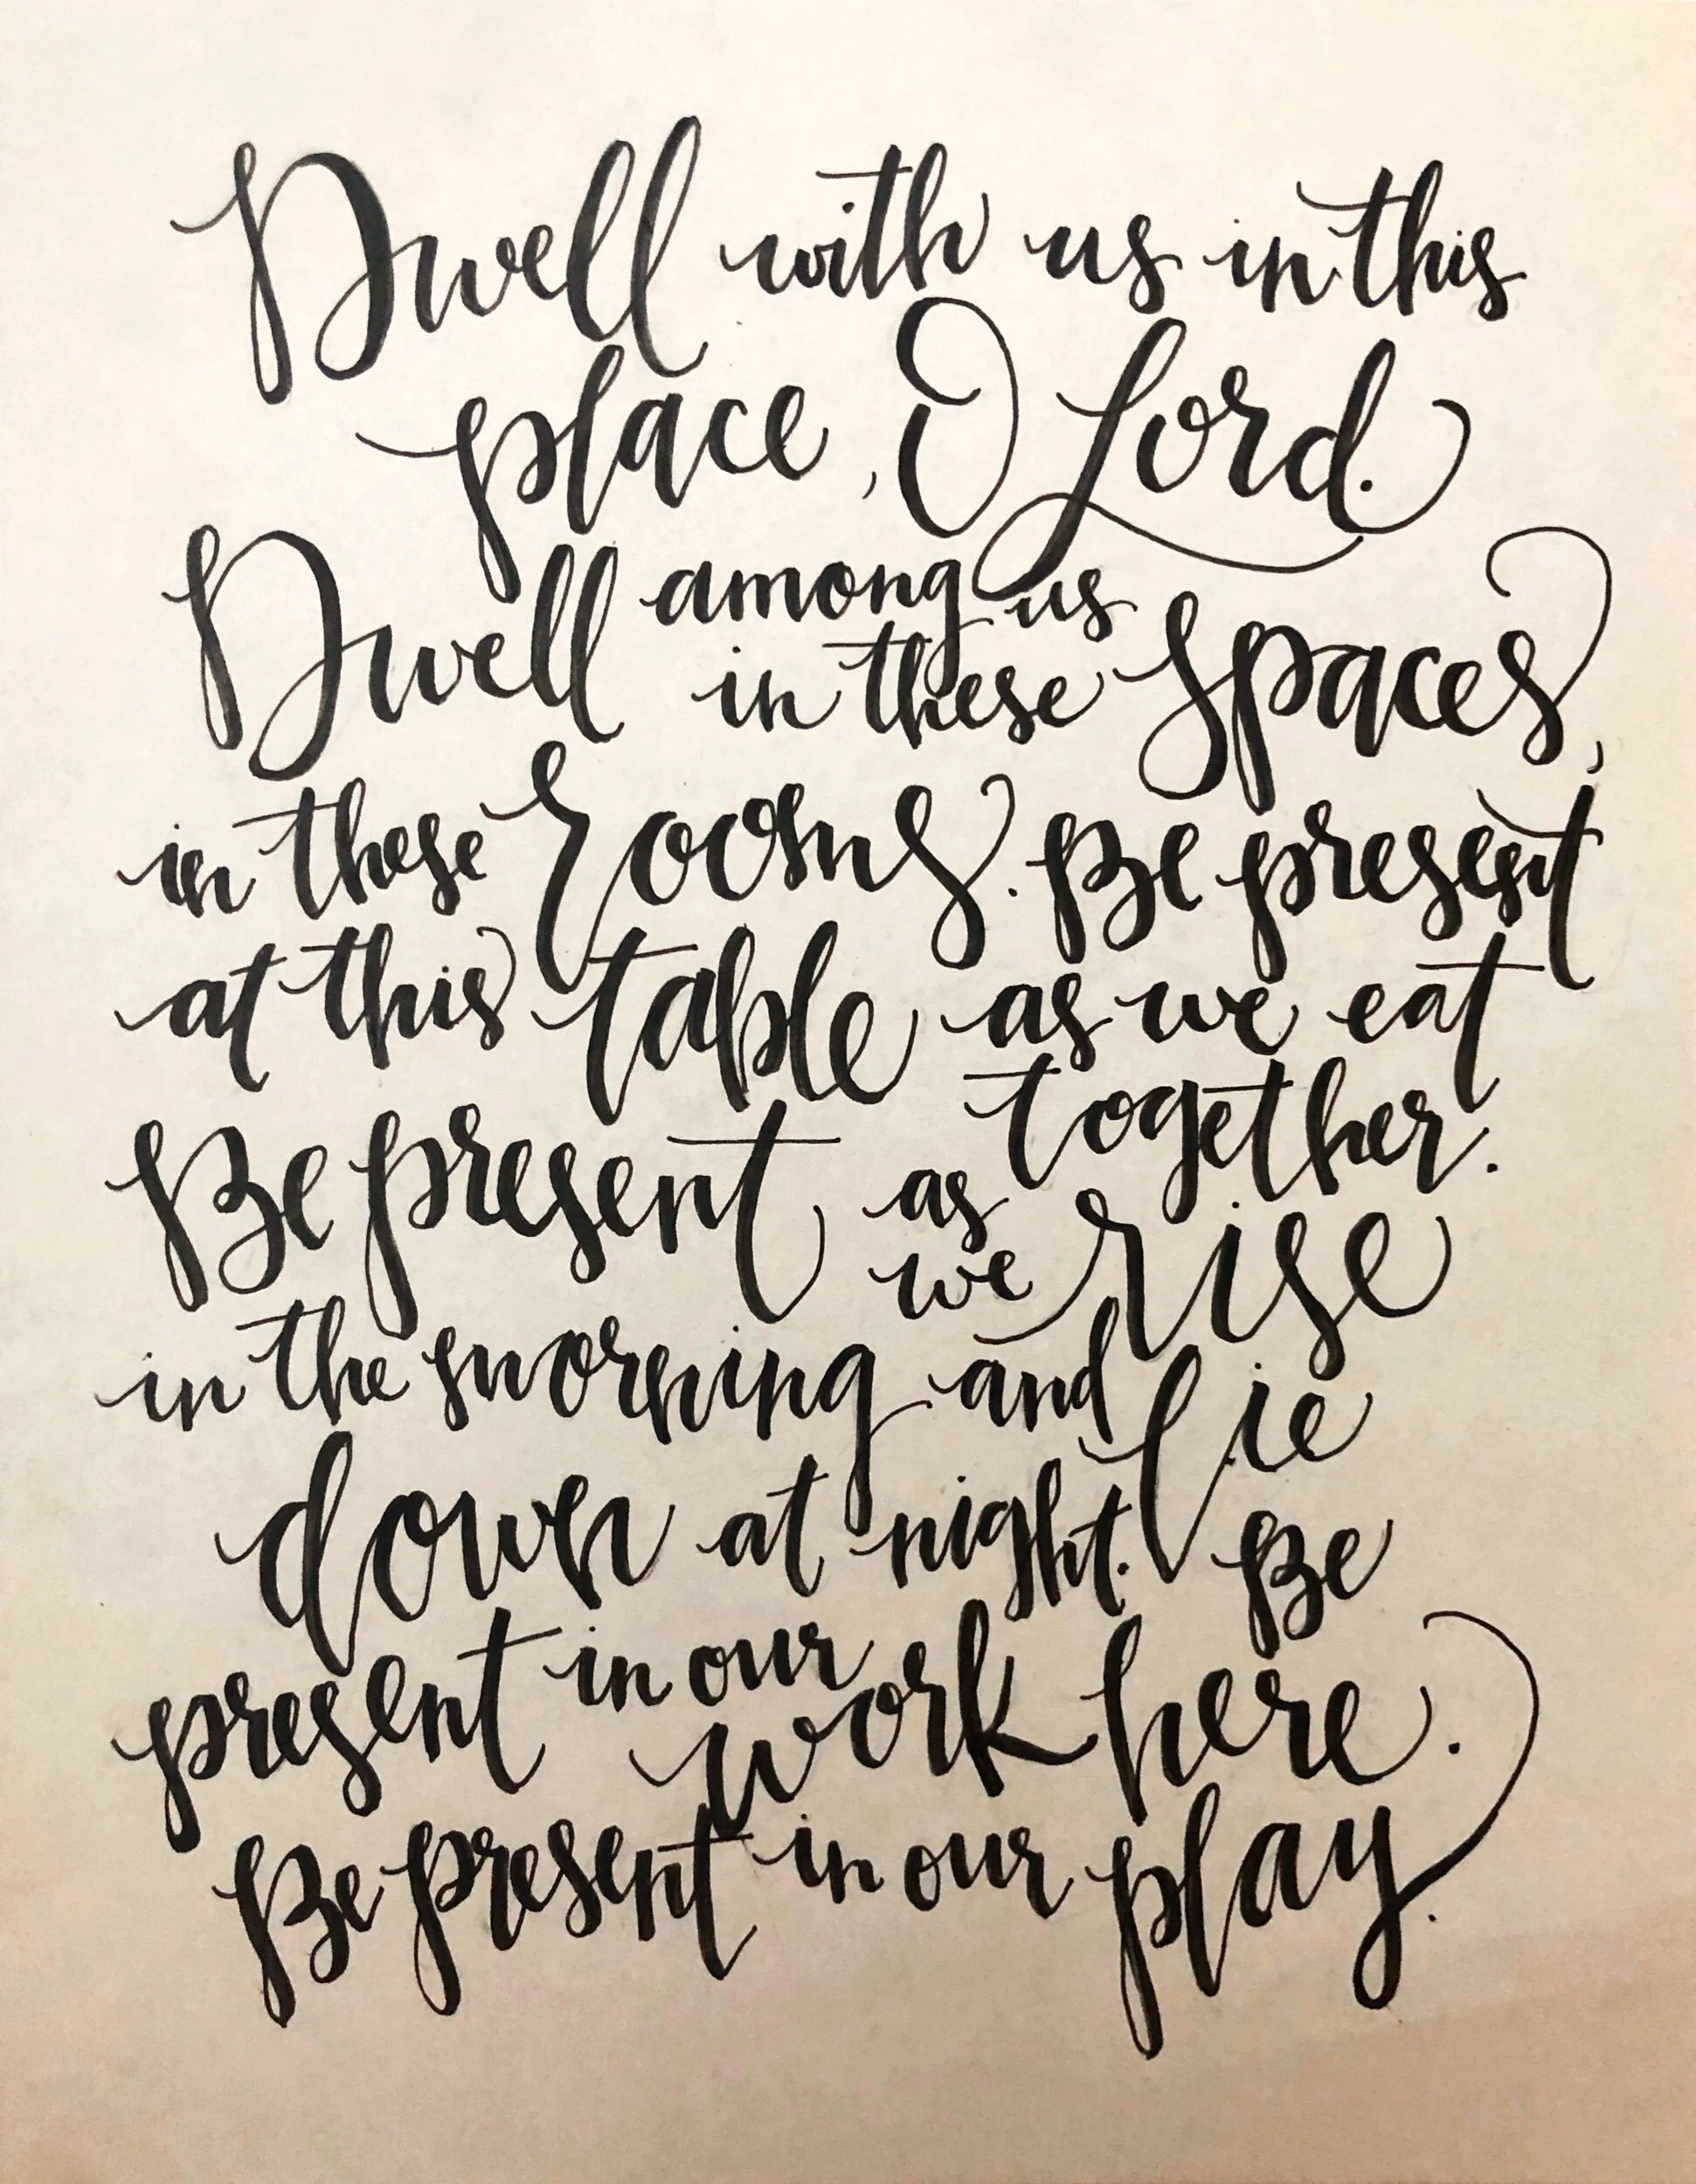 Dwell with us in this
place, O Lord.
Dwell among us
in these spaces,
in these rooms. Be present
at this table as we eat
together.
Be present as
we rise
in the morning and lie
down at night. Be
present in our
work here.
Be present in our play.